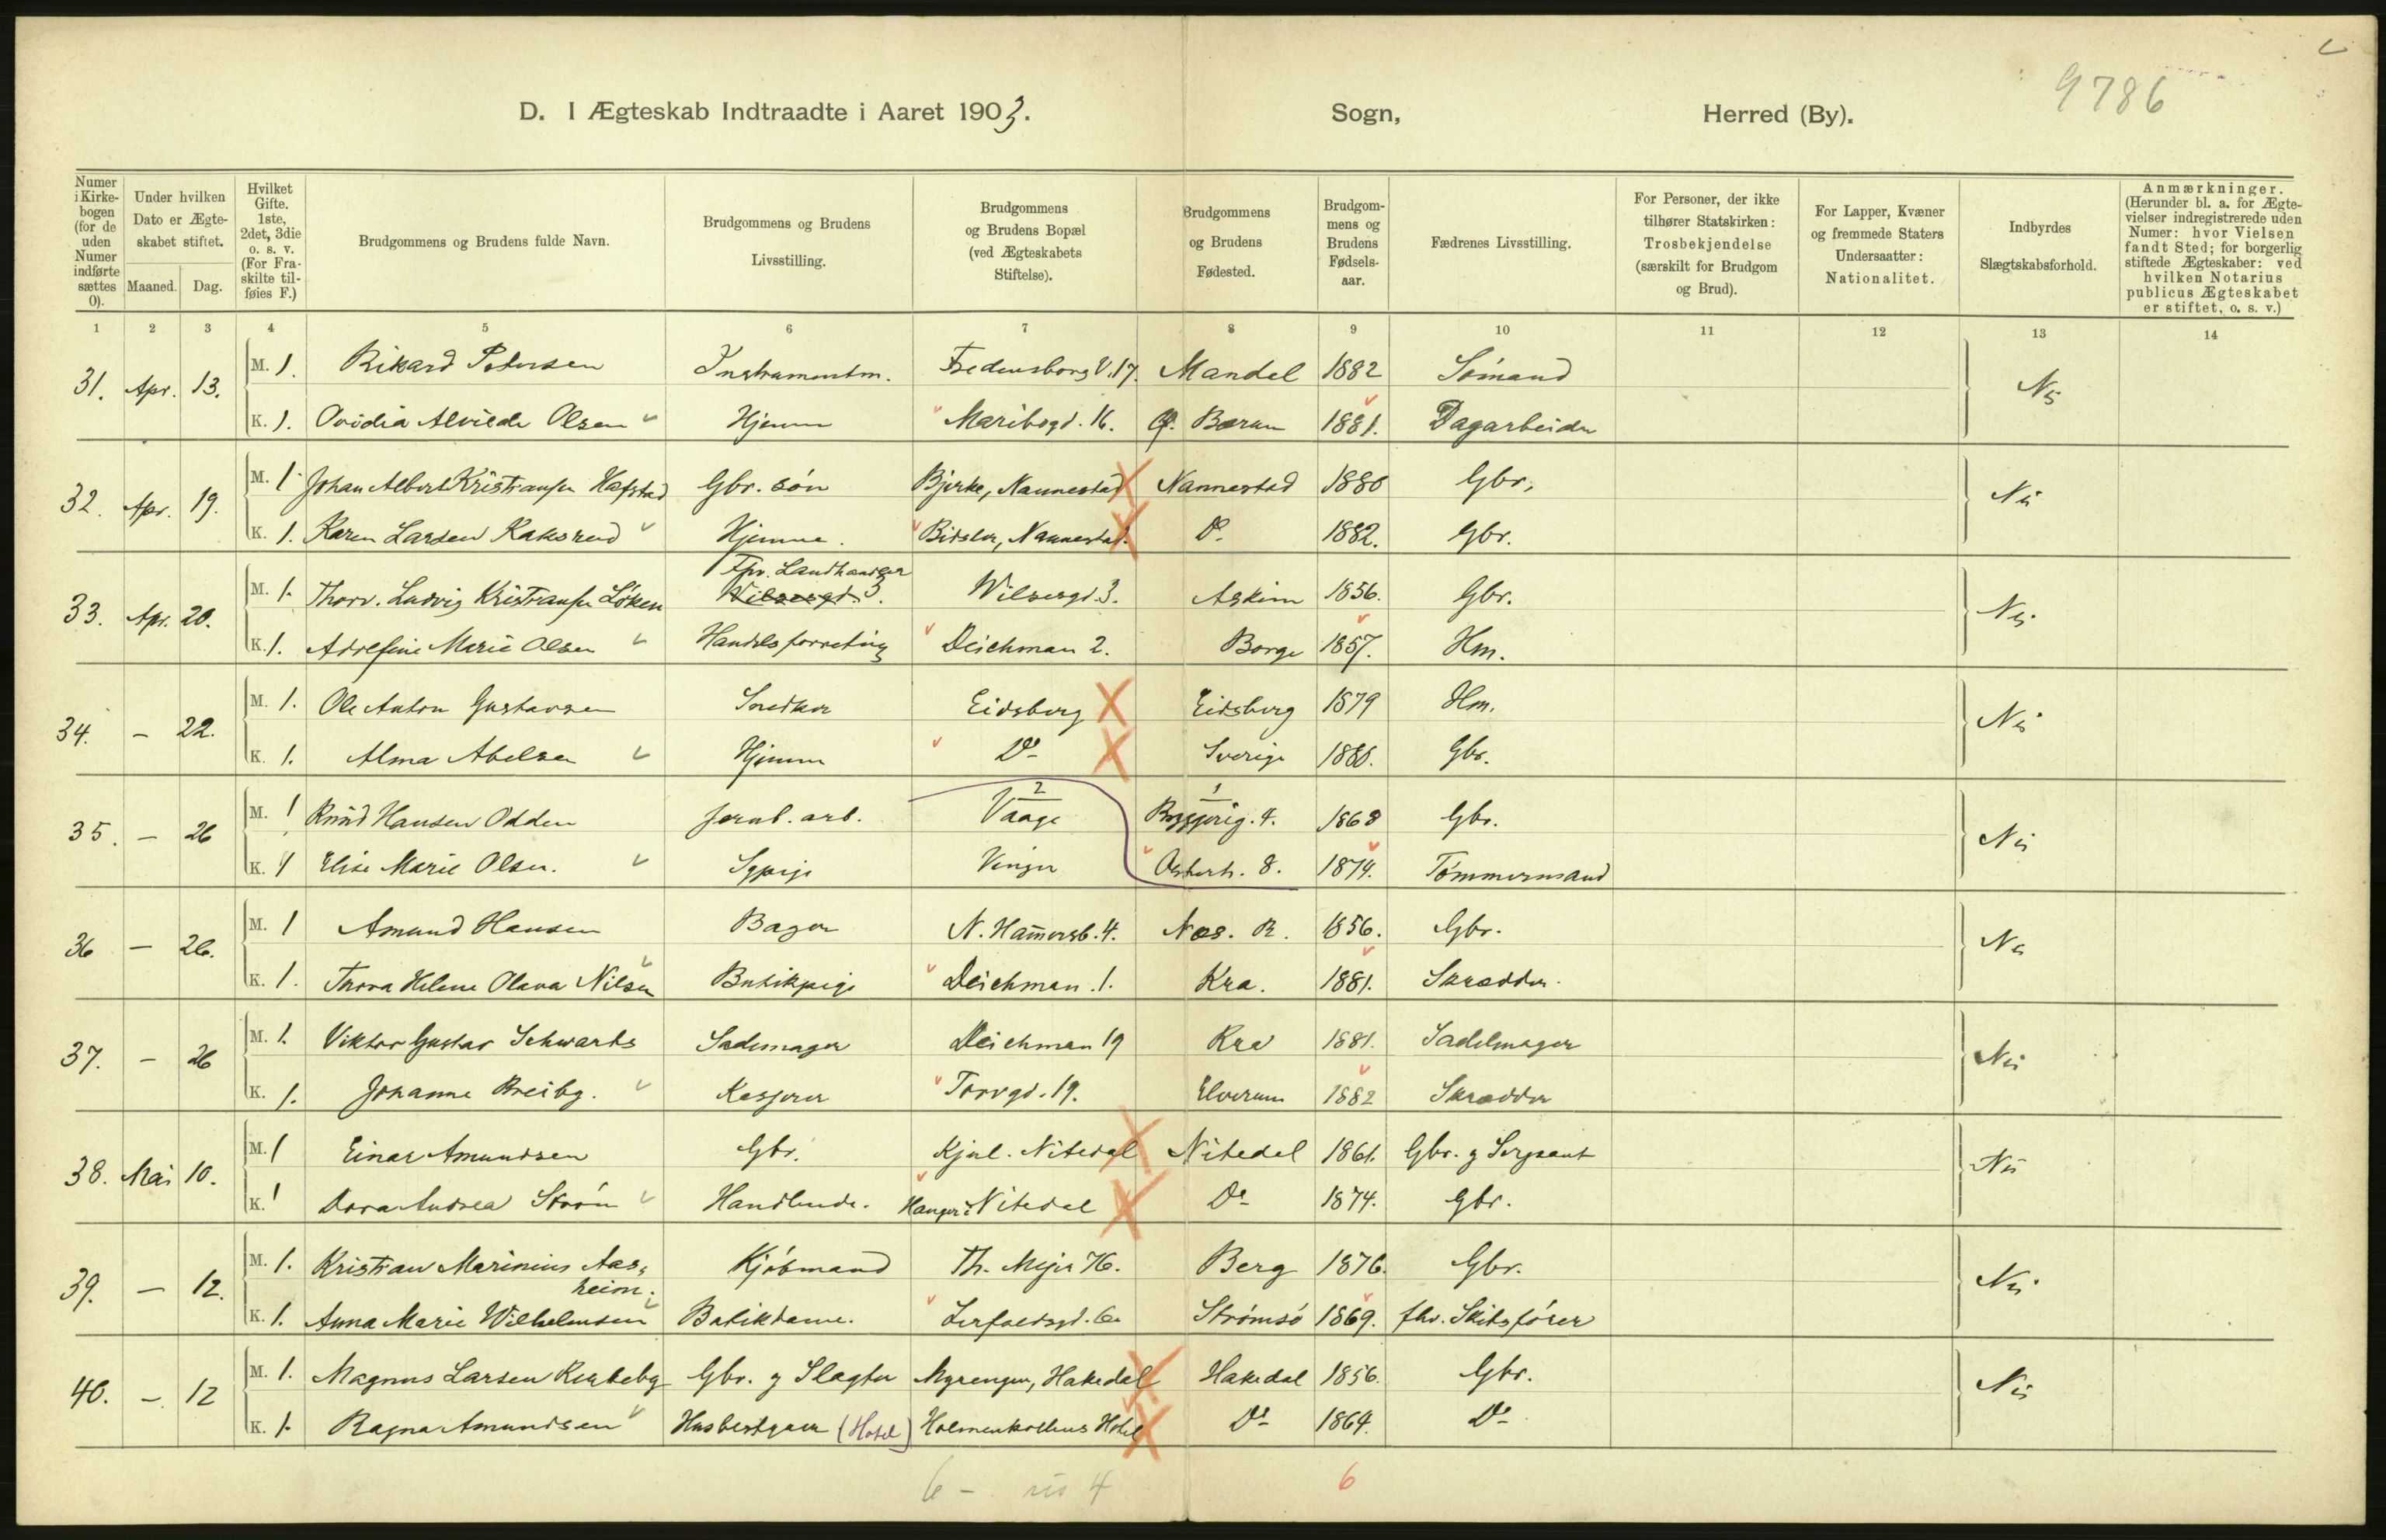 9786
D. I Ægteskab Indtraadte i Aaret 1903. Sogn, Herred (By).
Numer i Kirkebogen (for de uden Numer indførte sættes 0).
Under hvilken Dato er Ægteskabet stiftet.
Maaned. Dag.
Hvilket Gifte. 1ste, 2det, 3die o. s. v. (For Fraskilte tilføies F.)
Brudgommens og Brudens fulde Navn.
Brudgommens og Brudens Livsstilling.
Brudgommens og Brudens Bopæl (ved Ægteskabets Stiftelse).
Brudgommens og Brudens Fødested.
Brudgommens og Brudens Fødselsaar.
Fædrenes Livsstilling.
For Personer, der ikke tilhører Statskirken: Trosbekjendelse (særskilt for Brudgom og Brud).
For Lapper, Kvæner og fremmede Staters Undersaatter: Nationalitet.
Indbyrdes Slægtskabsforhold.
Anmærkninger. (Herunder bl. a. for Ægtevielser indregistrerede uden Numer: hvor Vielsen fandt Sted; for borgerlig stiftede Ægteskaber: ved hvilken Notarius publicus Ægteskabet er stiftet, o. s. v.)
1 2 3 4 5 6 7 8 9 10 11 12 13 14
31. Apr. 13. M. 1. Rikard Petersen Instrumentm. Fredensborg V. 17. Mandal 1882 Sömand Nei
K. 1. Ovidia Alvilde Olsen Hjemme Maribogd. 16. Bærum 1881. Dagarbeider
32. Apr. 19. M. 1. Johan Albert Kristiansen Hafstad Gbr. sön Bjerke, Nannestad Nannestad 1880 Gbr. Nei
K. 1. Karen Larsen Kaksrud Hjemme. Nannestad. Do 1882. Gbr.
33. Apr. 20. M. 1. Thorv. Ludvig Kristiansen Löken Fhv. Landhandler Wilsesgd. 3. Wilsesgd. 3. Askim 1856. Gbr. Nei
K. 1. Adolfine Marie Olsen Handelsforretning Deichman 2. Borge 1857. Hm.
34. - 22. M. 1. Ole Anton Gustavsen Snedker Eidsberg Eidsberg 1879 Hm. Nei
K. 1. Alma Abelsen Hjemme Do Sverige 1880. Gbr.
35. - 26 M. 1 Knud Hansen Odden Jernb. arb. 2 Vaage 1 Byggerig. 4. 1868 Gbr. Nei
K. 1 Elise Marie Olsen. Sypige Vinger 8. 1874. Tömmermand
36 - 26. M. 1 Amund Hansen Bager N. Hammersb. 4. Nes. R. 1856. Gbr. Nei
K. 1. Thora Helene Olava Nilsen Butikpige Deichman. 1. Kra. 1881. Skrædder.
37. - 26 M. 1. Viktor Gustav Schwartz Sadelmager Deichman 19 Kra 1881. Sadelmager Nei
K. 1. Johanne Breiby. Kasserer Torvgd. 19. Elverum 1882 Skrædder
38. Mai 10. M. 1 Einar Amundsen Gbr. Kjul. Nitedal Nitedal 1861. Gbr. og Sergeant Nei
K. 1 Dora Andrea Ström Handlende. Nitedal Do 1874. Gbr.
39. - 12. M. 1. Kristian Marinius Aasheim. Kjöbmand Th. Mejer 76. Berg 1876. Gbr. Nei
K. 1. Anna Marie Wilhelmsen Butikdame. Lerfaldsgd. 6 Strömsö 1869. fhv. Skibsförer
40. - 12 M. 1. Magnus Larsen Kirkeby Gbr. og Slagter Myrengen, Hakedal Hakedal 1856. Gbr. Nei
K. 1. Ragna Amundsen Husbestyrer (Hotel) Holmenkollens Hotel Do 1864. Do
6 - 4 6